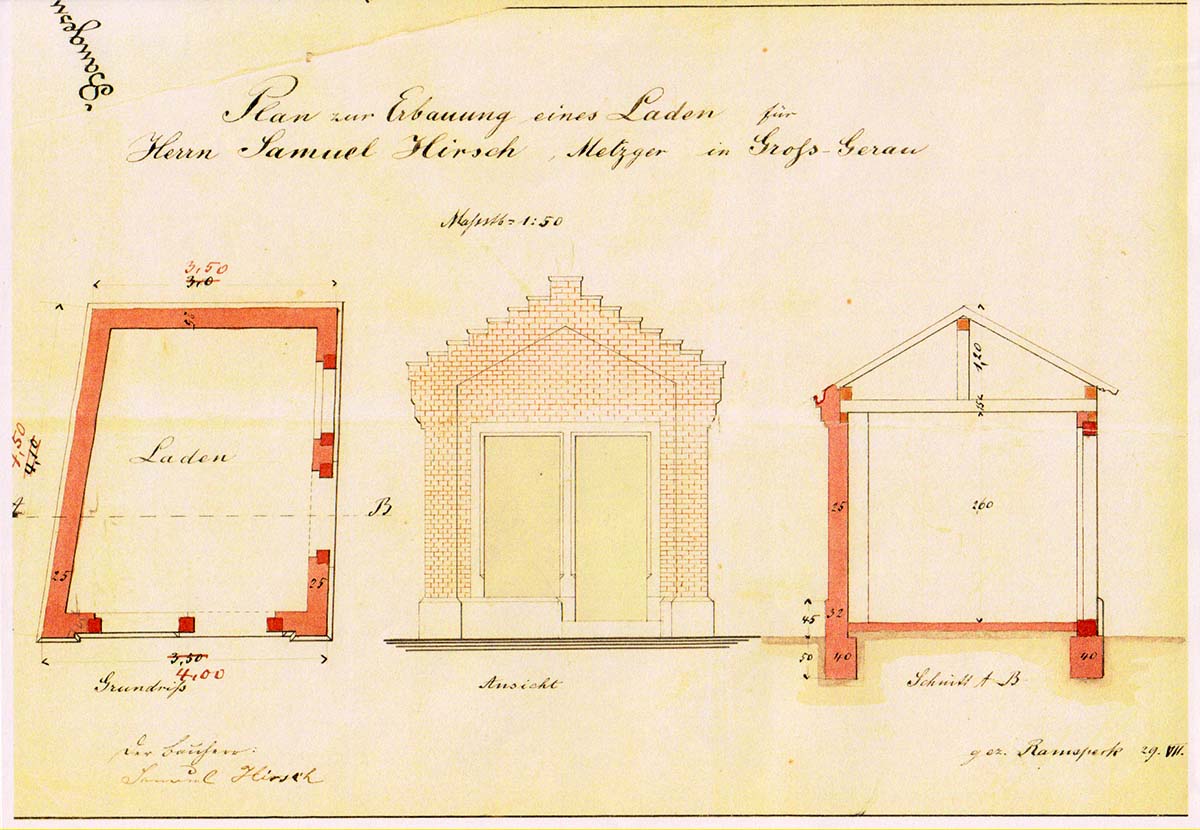 Plan zur Erbauung eines Laden für
Herrn Samuel Hirsch, Metzger in Groß-Gerau
Maßstb = 1:50
3,50
3,0
25
4,50
4,10
Laden
A
B
25
25
3,50
4,00
Grundriß
Ansicht
1,20
15
25
260
45
32
50
40
40
Schnitt A B
Der Bauherr:
Samuel Hirsch
gez. Ramspeck 29. VII.